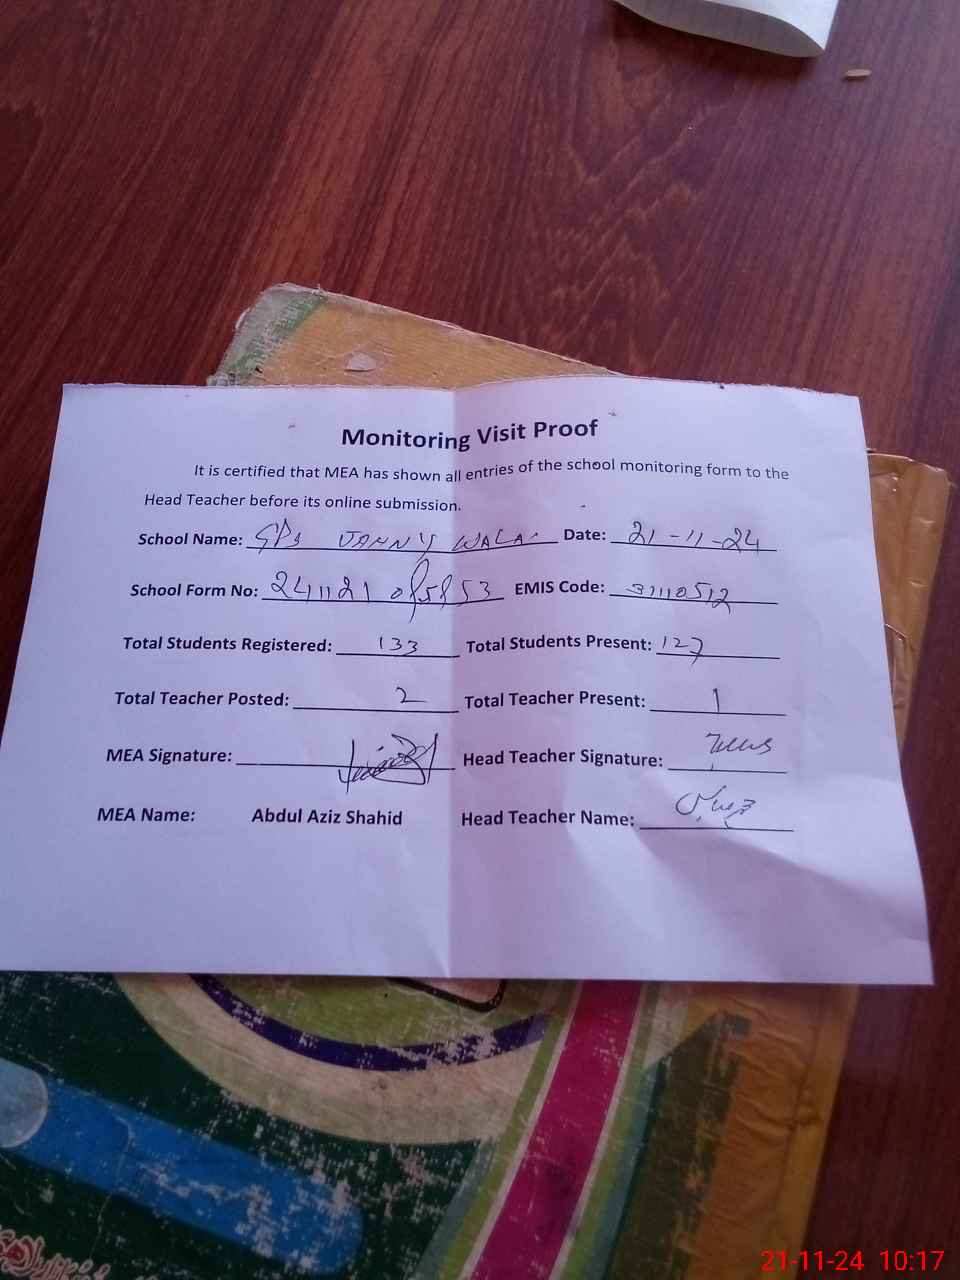 Monitoring Visit Proof
It is certified that MEA has shown all entries of the school monitoring form to the
Head Teacher before its online submission.
School Name: GPS JANNY WALA Date: 21-11-24
School Form No: EMIS Code: 31110512
Total Students Registered: 133 Total Students Present: 127
Total Teacher Posted: 2 Total Teacher Present: 1
MEA Signature: Head Teacher Signature:
MEA Name: Abdul Aziz Shahid Head Teacher Name:
21-11-24 10:17